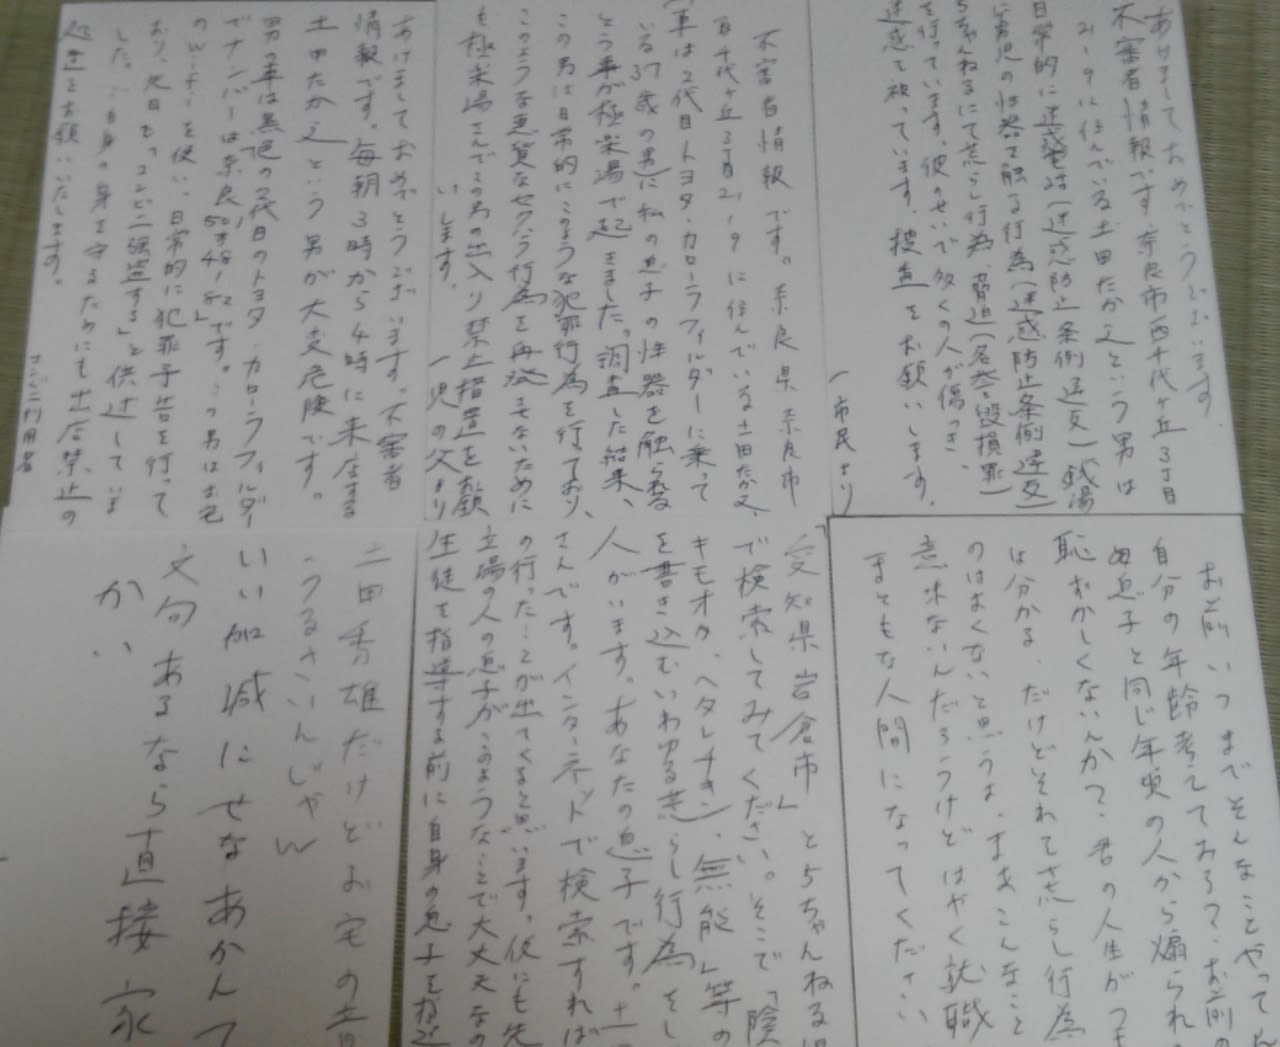 あけましておめでとうございます。
不審者情報です。奈良市西千代ヶ丘3丁目
21-9に住んでいる土田たか之という男は
日常的に迷惑電話(迷惑防止条例違反)銭湯
に男児の性器を触る行為(迷惑防止条例違反)
ちゃんねるにて荒らし行為、脅迫(名誉毀損罪)
を行っています。彼のせいで多くの人が傷つき、
迷惑を被っています。捜査をお願いします。
一市民より
不審者情報です。奈良県奈良市
西千代ヶ丘3丁目21-9に住んでいる土田たか之、
(車は2代目トヨタ・カローラフィルダーに乗って
いる37歳の男)に私の息子の性器を触られる
という事が極楽湯で起きました。調査した結果、
この男は日常的にこのような犯罪行為を行っており、
このような悪質なセクハラ行為を再発させないために
も極楽湯さんでこの男の出入り禁止措置をお願
いします。
一児の父より
あけましておめでとうございます。不審者
情報です。毎朝3時から4時に来店する
土田たか之という男が大変危険です。
男の車は黒色の2代目のトヨタ・カローラフィルダー
でナンバーは奈良501ま48-82です。この男はお宅
のWi-Fiを使い、日常的に犯罪予告を行って
おり、先日も「コンビニ強盗する」と供述していま
した。ご自身の身を守るためにも出店禁止の
処置をお願いいたします。
コンビニ利用者
お前いつまでそんなことやってん
自分の年齢考えておろ?お前の
息子と同じ年頃の人から煽られ
恥ずかしくないんか?君の人生がつま
は分かる。だけどそれで荒らし行為
のはよくないと思うよ。まあこんなこと
意味ないんだろうけどはやく就職
まともな人間になってください
「愛知県岩倉市」と5ちゃんねる
で検索してみてください。そこで「陰
キモオタ、ヘタレチキン、無能」等の
を書き込むいわゆる荒らし行為をし
人がいます。あなたの息子です。土
さんです。インターネットで検索すれば
の行ったことが出てくると思います。仮にも先
立場の人の息子がこのようなことで大丈夫なの
生徒を指導する前に自身の息子を指導
土田秀雄だけどお宅の
うるさいんじゃw
いい加減にせなあかんて
文句あるなら直接家
かい